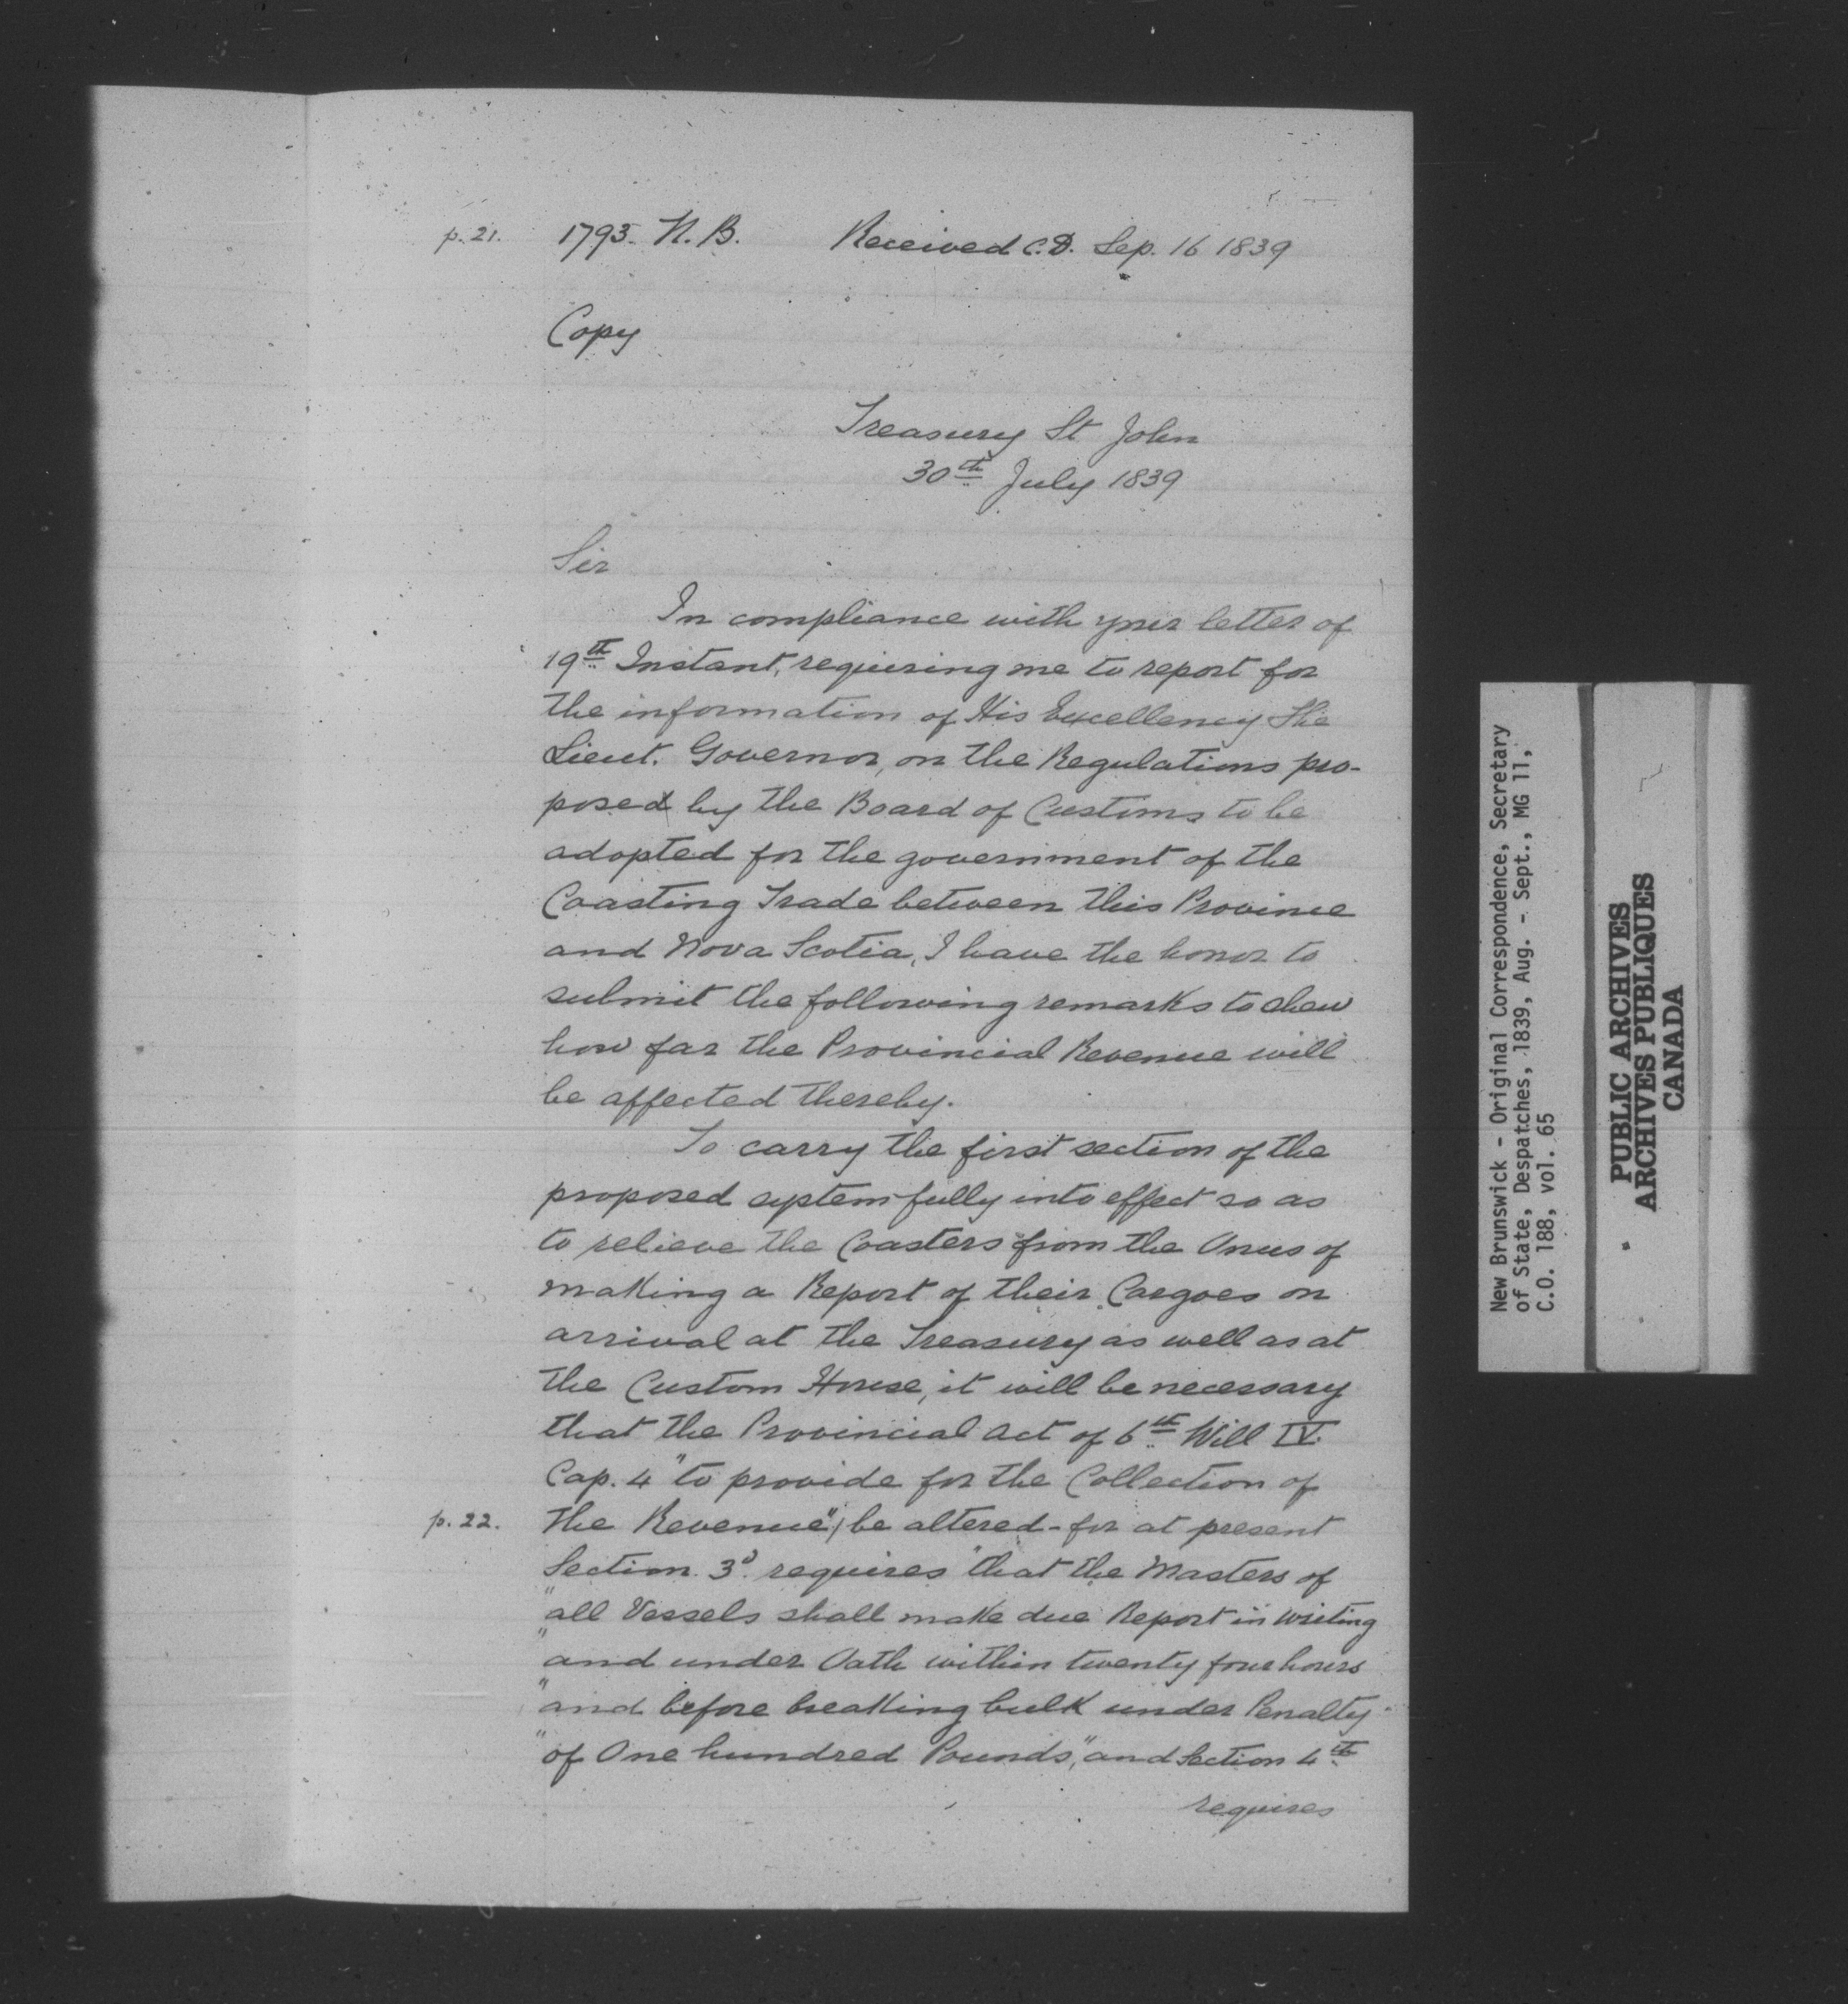 p. 21. 1793. N. B. Received C.D. Sep. 16 1839
Copy
Treasury St John
30th July 1839
Sir
In compliance with your letter of
19th Instant, requiring me to report for
the information of His Excellency The
Lieut. Governor, on the Regulations pro-
posed by the Board of Customs to be
adopted for the government of the
Coasting Trade between this Province
and Nova Scotia, I have the honor to
submit the following remarks to shew
how far the Provincial Revenue will
be affected thereby.
To carry the first section of the
proposed system fully into effect so as
to relieve the Coasters from the Onus of
making a Report of their Cargoes on
arrival at the Treasury as well as at
the Custom House, it will be necessary
that the Provincial Act of 6th Will IV.
Cap. 4 "to provide for the Collection of
p. 22. the Revenue", be altered - for at present
Section 3d. requires "that the Masters of
"all Vessels shall make due Report in writing
"and under Oath within twenty four hours
"and before breaking bulk under Penalty
"of One hundred Pounds," and Section 4th
requires
New Brunswick - Original Correspondence, Secretary
of State, Despatches, 1839, Aug. - Sept., MG 11,
C.O. 188, vol. 65
PUBLIC ARCHIVES
ARCHIVES PUBLIQUES
CANADA